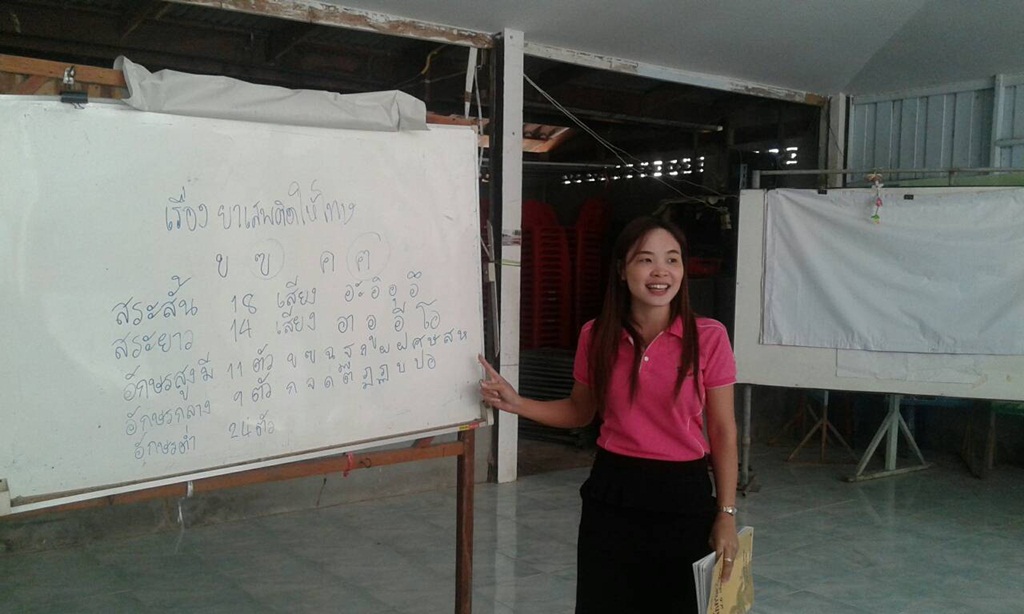 เรื่อง ยาเสพติดให้โทษ
ข ฃ ค ฅ
สระสั้น 18 เสียง อะ อิ อุ อึ
สระยาว 14 เสียง อา อู อี โอ
อักษรสูงมี 11 ตัว ข ฃ ฉ ฐ ถ ผ ฝ ศ ษ ส ห
อักษรกลาง 9 ตัว ก จ ด ต ฎ ฏ บ ป อ
อักษรต่ำ 24 ตัว